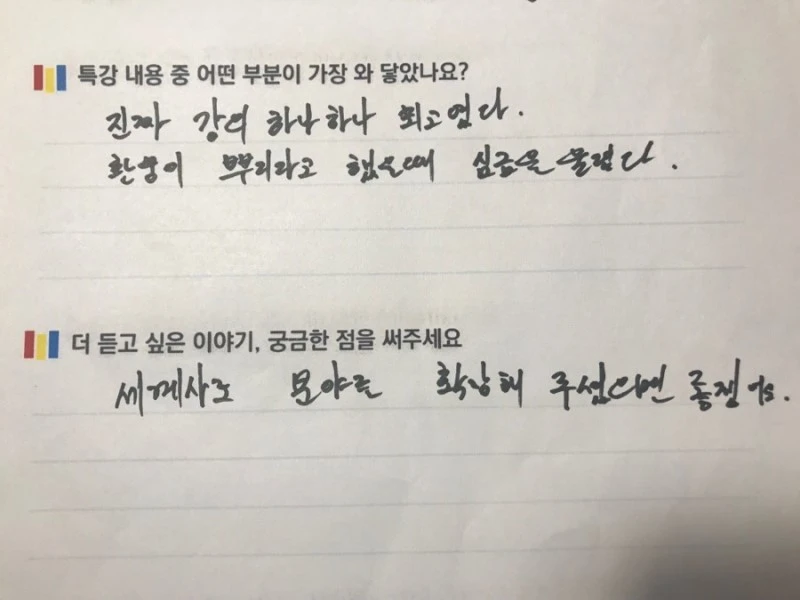 특강 내용 중 어떤 부분이 가장 와 닿았나요?
진짜 강의 하나하나 최고였다.
환웅이 뿌리라고 했을때 심금을 울렸다.
더 듣고 싶은 이야기, 궁금한 점을 써주세요
세계사로 분야를 확장해 주셨으면 좋겠어요.